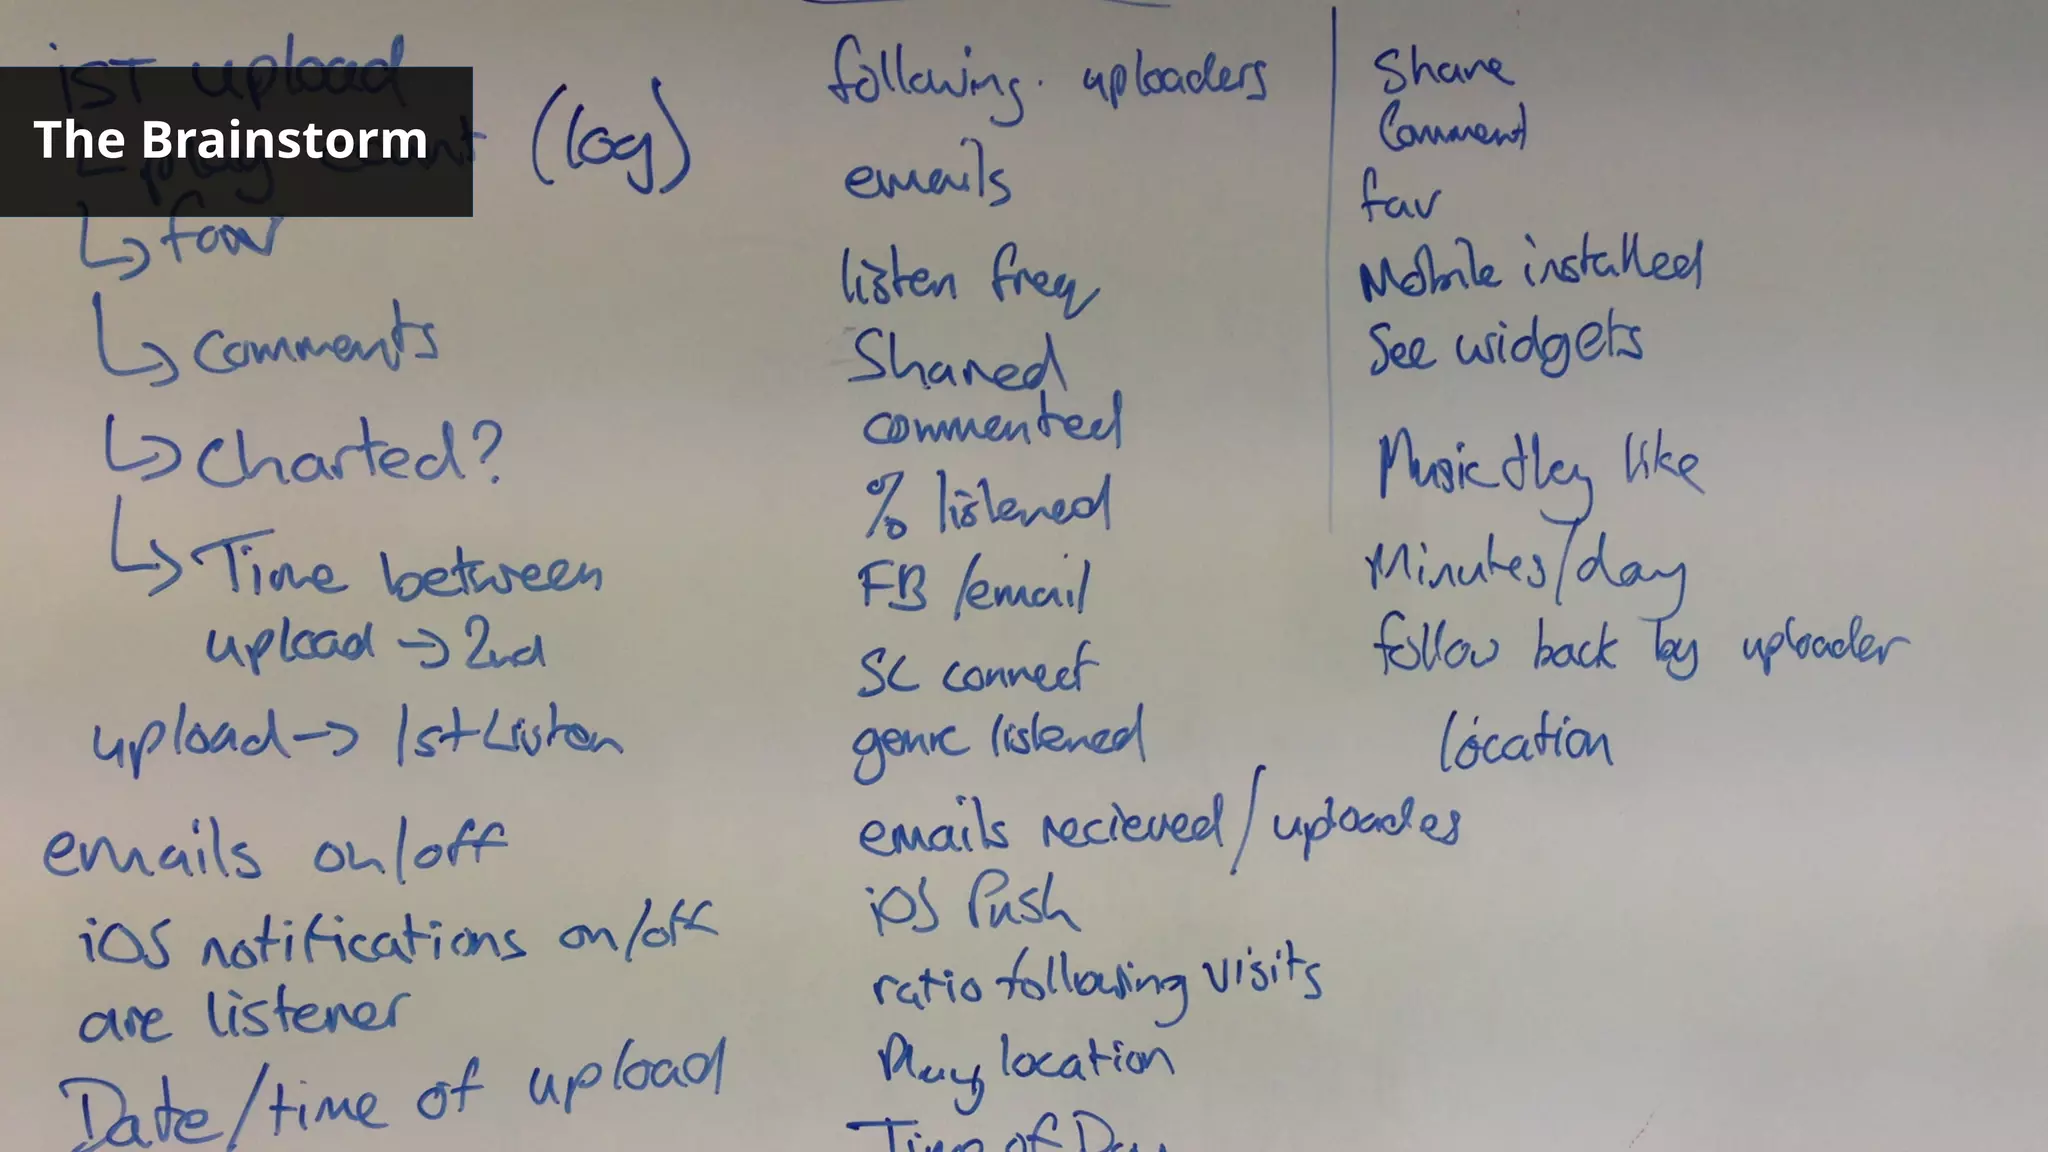 1ST upload
The Brainstorm
↳ play count (log)
↳ fav
↳ comments
↳ Charted?
↳ Time between
upload → 2nd
upload → 1st Listen
emails on/off
iOS notifications on/off
are listener
Date/time of upload
following. uploaders
emails
listen freq
Shared
commented
% listened
FB/email
SC connect
genre listened
emails recieved/uploades
iOS Push
ratio following visits
Play location
Time of Day
Share
Comment
fav
Mobile installed
See widgets
Music they like
Minutes/day
follow back by uploader
location